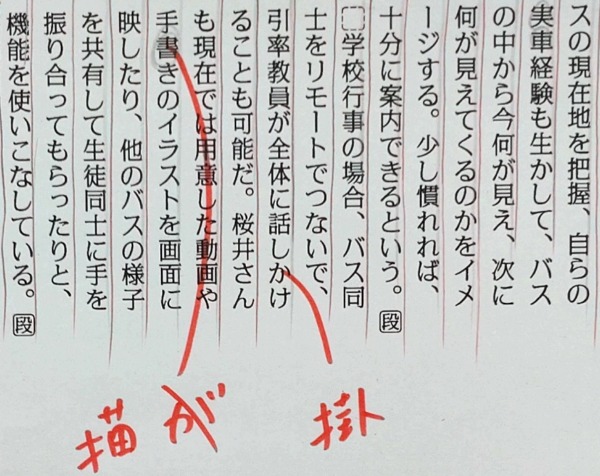 スの現在地を把握、自らの
実車経験も生かして、バス
の中から今何が見え、次に
何が見えてくるのかをイメ
ージする。少し慣れれば、
十分に案内できるという。段
学校行事の場合、バス同
士をリモートでつないで、
引率教員が全体に話しかけ
ることも可能だ。桜井さん
も現在では用意した動画や
手書きのイラストを画面に
映したり、他のバスの様子
を共有して生徒同士に手を
振り合ってもらったりと、
機能を使いこなしている。段
掛
描が